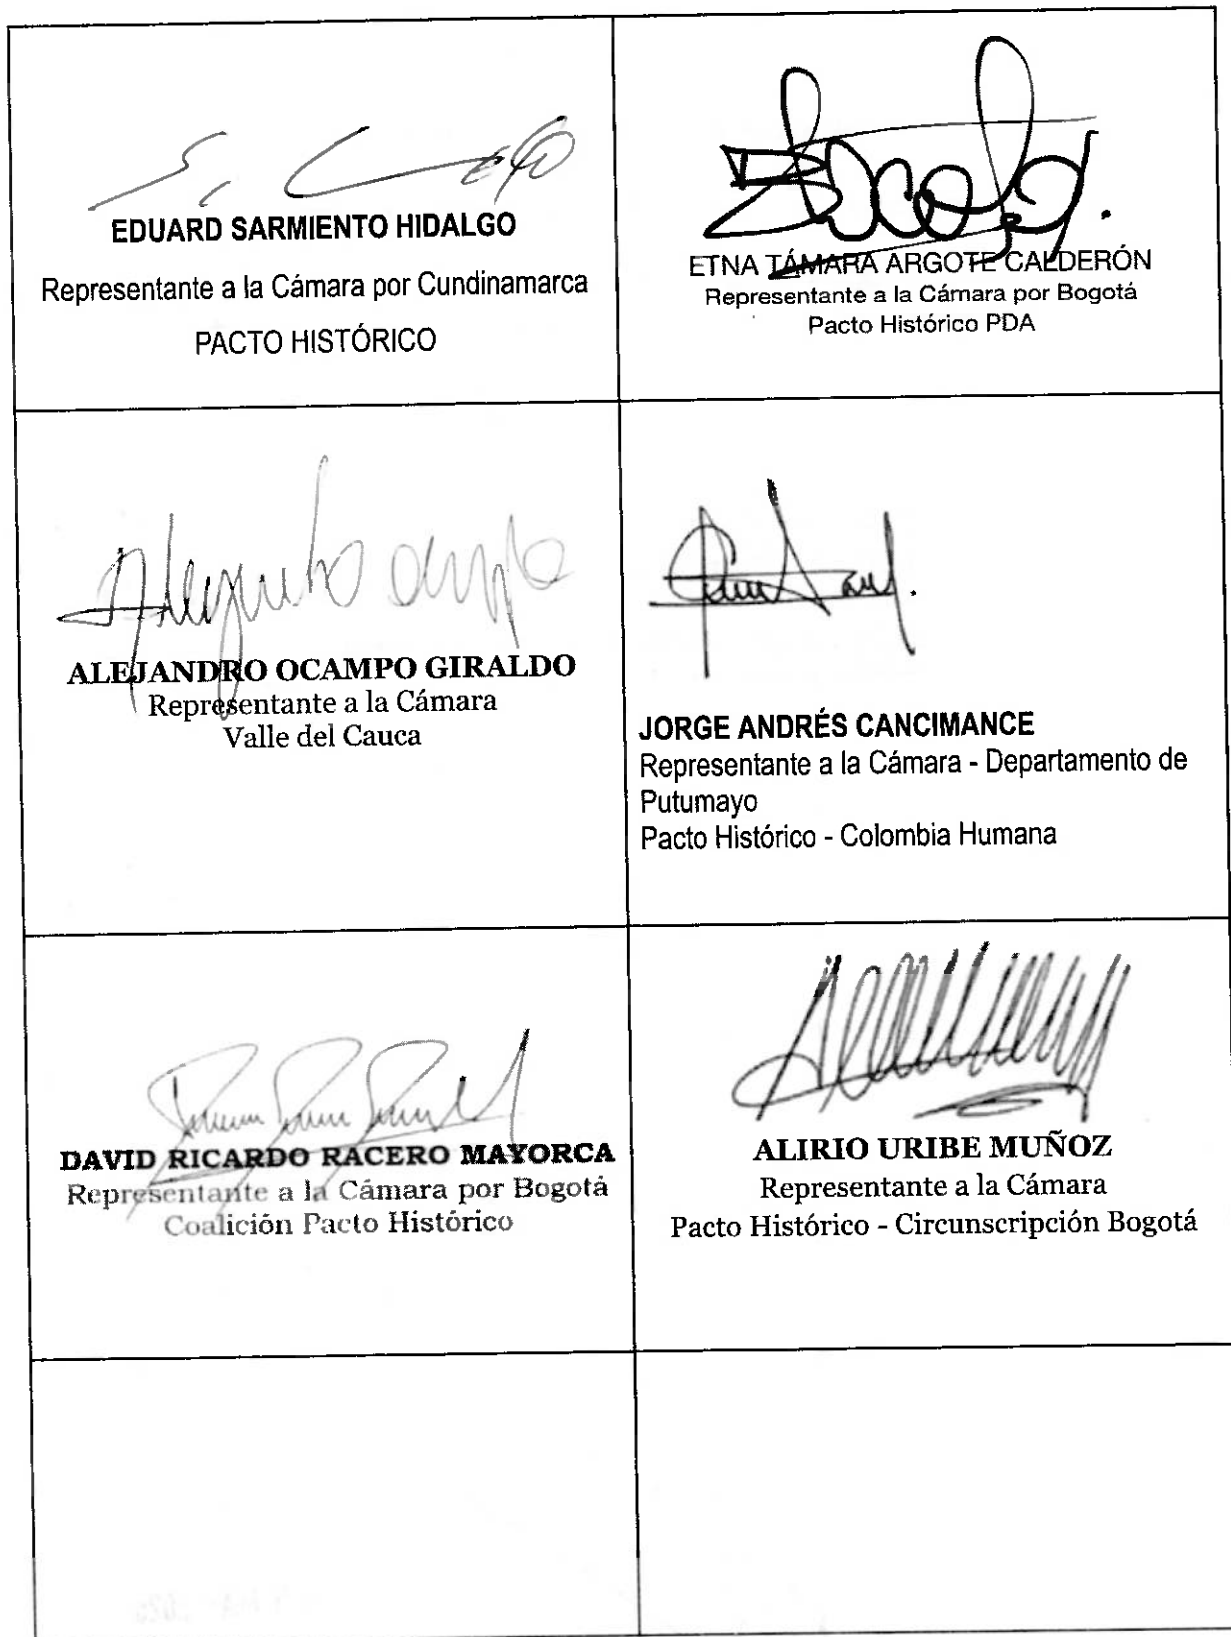 EDUARD SARMIENTO HIDALGO
Representante a la Cámara por Cundinamarca
PACTO HISTÓRICO
ETNA TÁMARA ARGOTE CALDERÓN
Representante a la Cámara por Bogotá
Pacto Histórico PDA
Alejandro Ocampo
ALEJANDRO OCAMPO GIRALDO
Representante a la Cámara
Valle del Cauca
JORGE ANDRÉS CANCIMANCE
Representante a la Cámara - Departamento de
Putumayo
Pacto Histórico - Colombia Humana
DAVID RICARDO RACERO MAYORCA
Representante a la Cámara por Bogotá
Coalición Pacto Histórico
ALIRIO URIBE MUÑOZ
Representante a la Cámara
Pacto Histórico - Circunscripción Bogotá